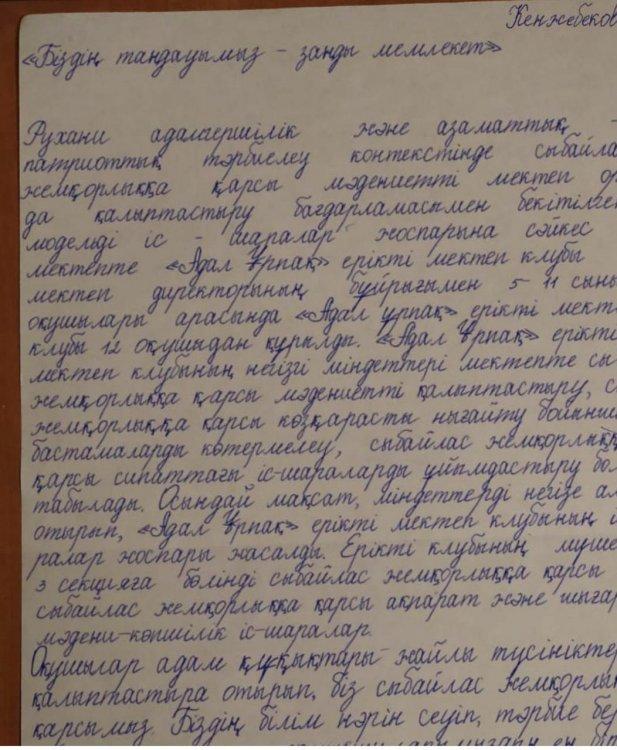 Кенжебеков
«Біздің таңдауымыз – заңды мемлекет»
Рухани адамгершілік және азаматтық –
патриоттық тәрбиелеу контекстінде сыбайла
жемқорлыққа қарсы мәдениетті мектеп ор
да қалыптастыру бағдарламасымен бекітілген
модельді іс – шаралар жоспарына сәйкес
мектепте «Адал Ұрпақ» ерікті мектеп клубы
мектеп директорының бұйрығымен 5 - 11 сынып
оқушылары арасында «Адал ұрпақ» ерікті мект
клубы 12 оқушыдан құрылды. «Адал Ұрпақ» ерікті
мектеп клубының негізгі міндеттері мектепте сы
жемқорлыққа қарсы мәдениетті қалыптастыру, с
жемқорлыққа қарсы көзқарасты нығайту бойынша
бастамаларды көтермелеу, сыбайлас жемқорлыққ
қарсы сипаттағы іс-шараларды ұйымдастыру бол
табылады. Осындай мақсат, міндеттерді негізе ал
отырып, «Адал Ұрпақ» ерікті мектеп клубының і
ралар жоспары жасалды. Ерікті клубының мүше
3 секцияға бөлінді сыбайлас жемқорлыққа қарсы
сыбайлас жемқорлыққа қарсы ақпарат және шығар
мәдени-көпшілік іс-шаралар.
Оқушылар адам құқықтары жайлы түсініктер
қалыптастыра отырып, біз сыбайлас жемқорлық
қарсымыз. Біздің білім нәрін сеуіп, тәрбие бер